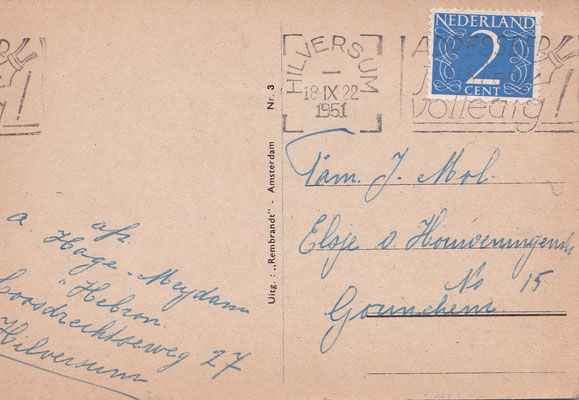 NEDERLAND
2
CENT
HILVERSUM
18 IX 22
1951
volledig!
Uitg.: „Rembrandt" - Amsterdam Nr. 3
Fam. J. Mol.
Elsje v. Houweningenstr
No 15
Gorinchem
afz
a. Hage-Meydam
"Hebron"
Loosdrechtseweg 27
Hilversum